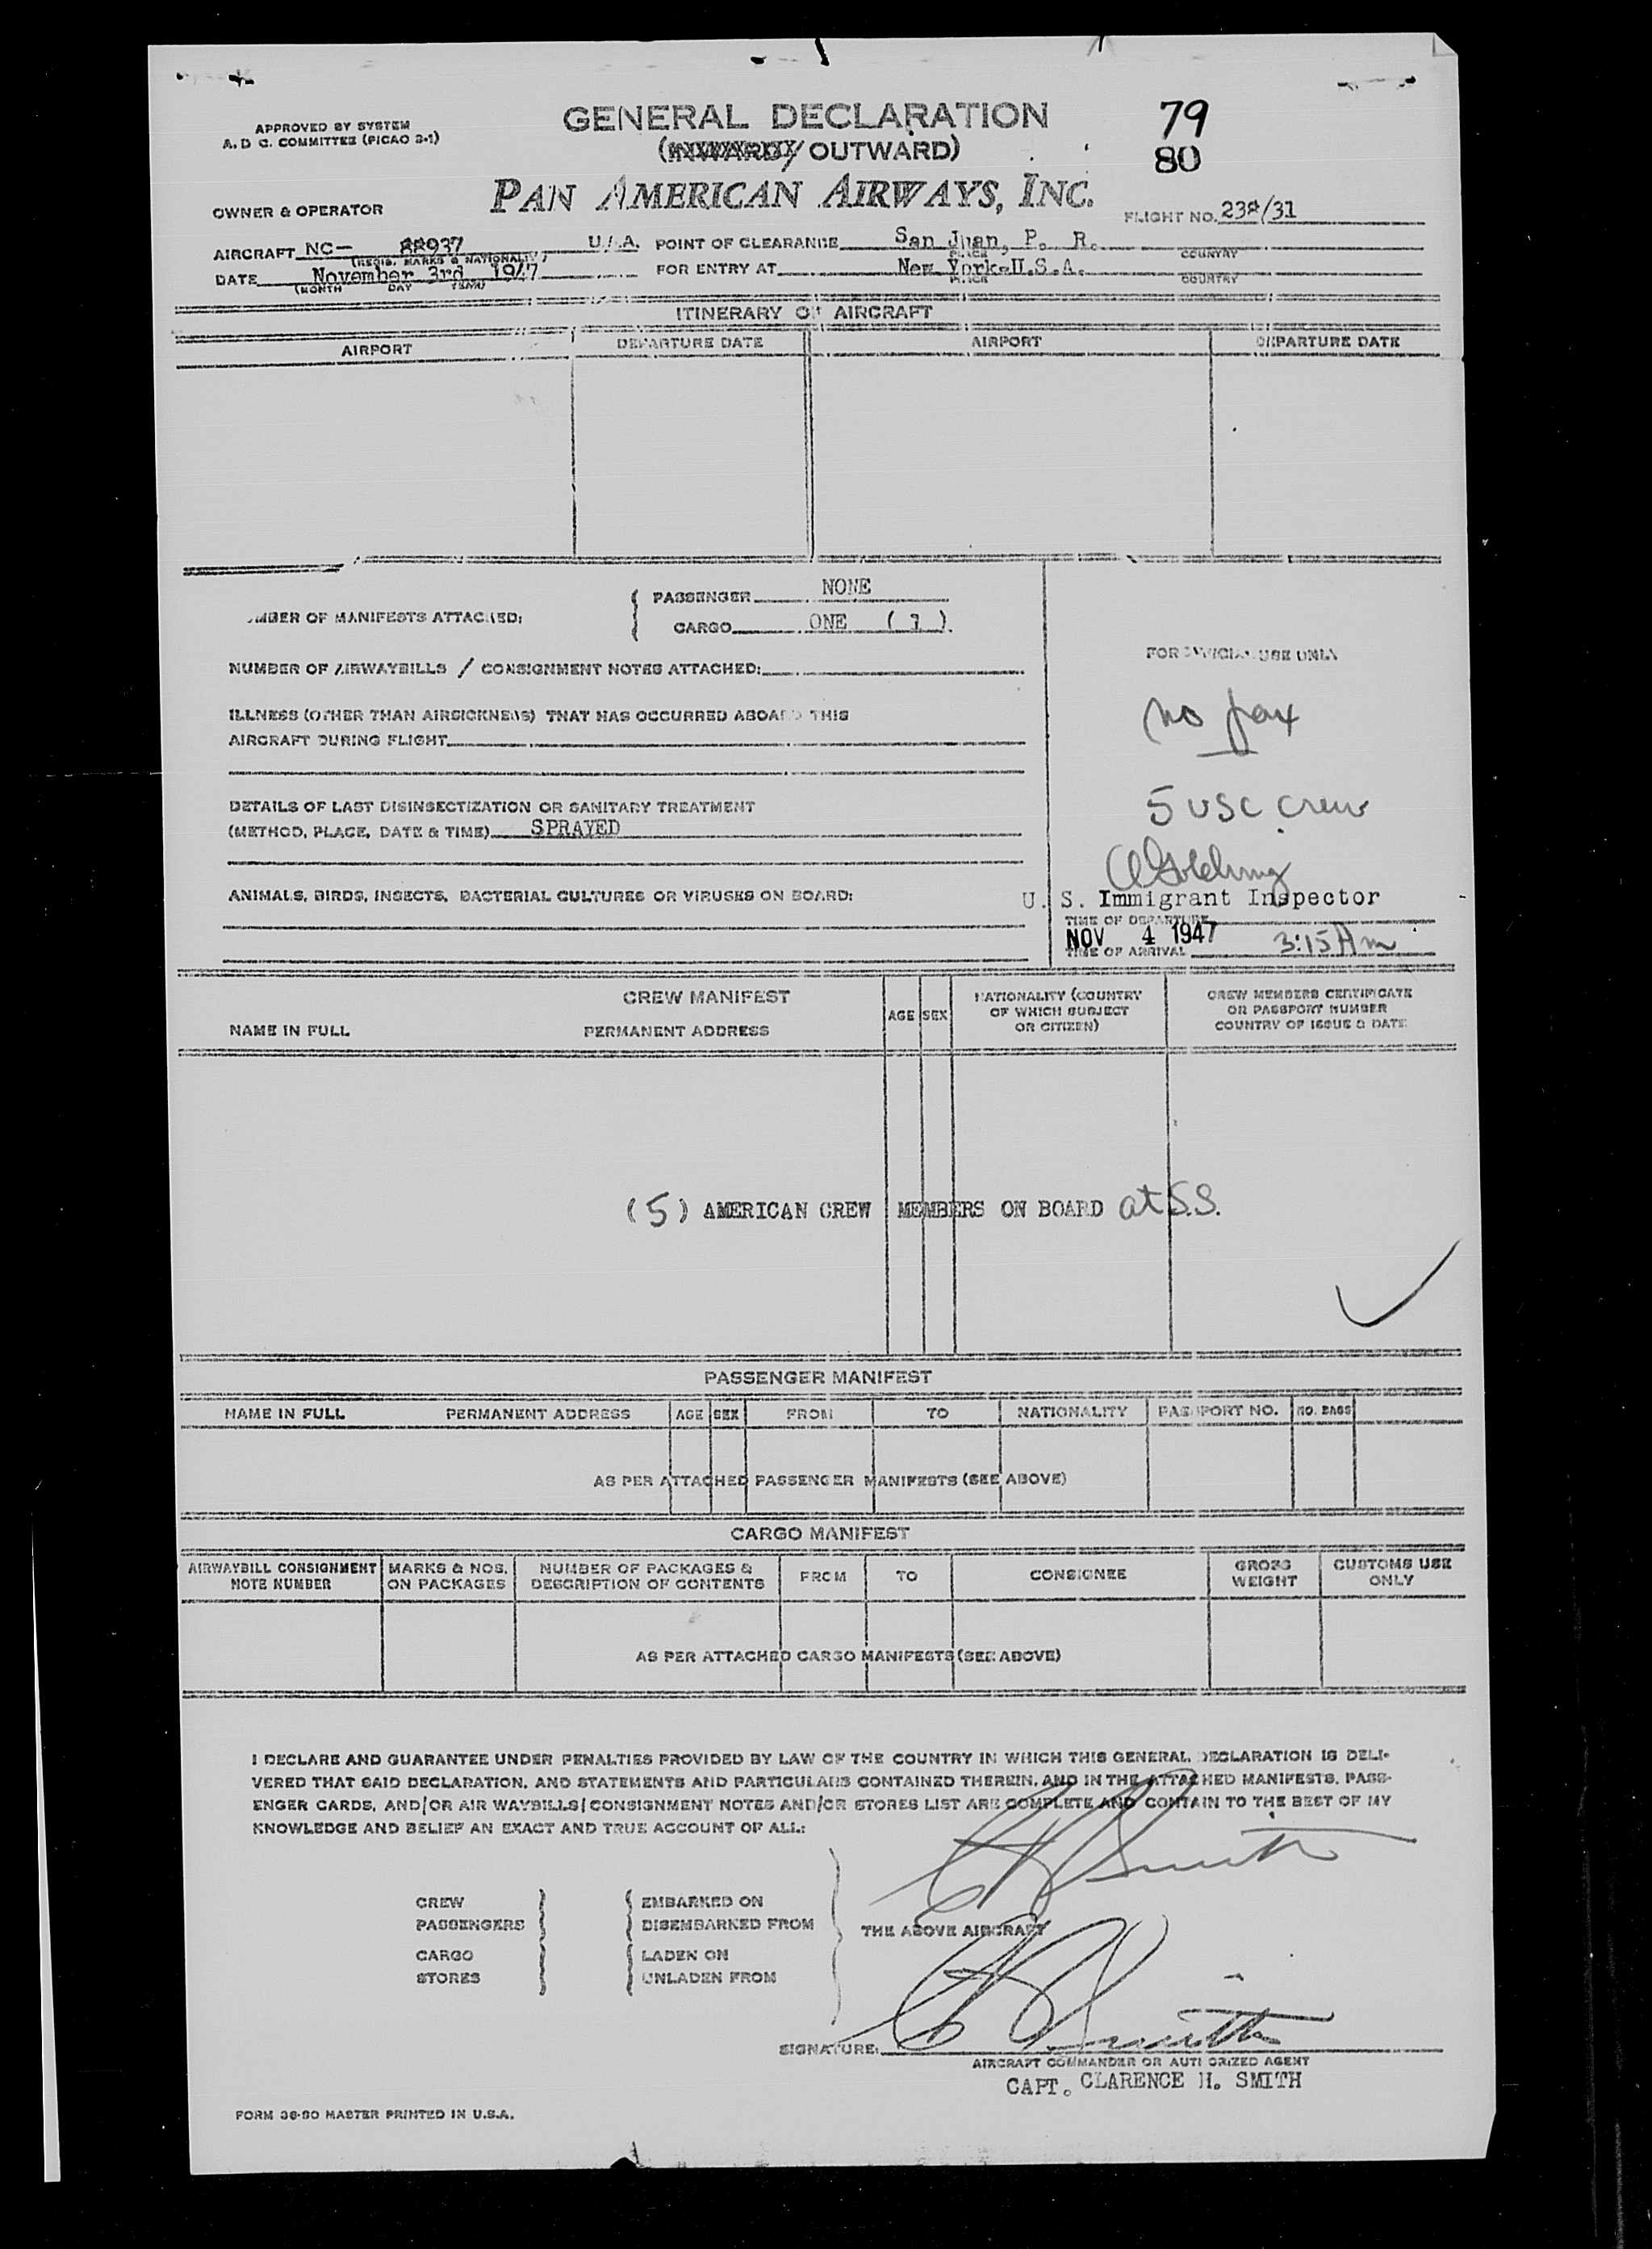 79
80
APPROVED BY SYSTEM
A. D. C. COMMITTEE (PICAO 2-1)
GENERAL DECLARATION
(INWARD/ OUTWARD)
OWNER & OPERATOR
PAN AMERICAN AIRWAYS, INC.
FLIGHT NO. 238/31
AIRCRAFT NC- 88937 U.S.A. POINT OF CLEARANCE San Juan, P. R.
(REGIS. MARKS & NATIONALITY) PLACE COUNTRY
DATE November 3rd 1947 FOR ENTRY AT New York-U.S.A.
(MONTH DAY YEAR) PLACE COUNTRY
ITINERARY OF AIRCRAFT
AIRPORT DEPARTURE DATE AIRPORT DEPARTURE DATE
NUMBER OF MANIFESTS ATTACHED: PASSENGER NONE
CARGO ONE ( 1 )
NUMBER OF AIRWAYBILLS / CONSIGNMENT NOTES ATTACHED:
ILLNESS (OTHER THAN AIRSICKNESS) THAT HAS OCCURRED ABOARD THIS
AIRCRAFT DURING FLIGHT
DETAILS OF LAST DISINSECTIZATION OR SANITARY TREATMENT
(METHOD, PLACE, DATE & TIME) SPRAYED
ANIMALS, BIRDS, INSECTS, BACTERIAL CULTURES OR VIRUSES ON BOARD:
FOR OFFICIAL USE ONLY
no pax
5 USC crew
U. S. Immigrant Inspector
TIME OF DEPARTURE
NOV 4 1947 3:15 Am
TIME OF ARRIVAL
CREW MANIFEST
NAME IN FULL PERMANENT ADDRESS AGE SEX NATIONALITY (COUNTRY OF WHICH SUBJECT OR CITIZEN) CREW MEMBERS CERTIFICATE OR PASSPORT NUMBER COUNTRY OF ISSUE & DATE
(5) AMERICAN CREW MEMBERS ON BOARD at S.S.
PASSENGER MANIFEST
NAME IN FULL PERMANENT ADDRESS AGE SEX FROM TO NATIONALITY PASSPORT NO. NO. BAGS
AS PER ATTACHED PASSENGER MANIFESTS (SEE ABOVE)
CARGO MANIFEST
AIRWAYBILL CONSIGNMENT NOTE NUMBER MARKS & NOS. ON PACKAGES NUMBER OF PACKAGES & DESCRIPTION OF CONTENTS FROM TO CONSIGNEE GROSS WEIGHT CUSTOMS USE ONLY
AS PER ATTACHED CARGO MANIFESTS (SEE ABOVE)
I DECLARE AND GUARANTEE UNDER PENALTIES PROVIDED BY LAW OF THE COUNTRY IN WHICH THIS GENERAL DECLARATION IS DELI-
VERED THAT SAID DECLARATION, AND STATEMENTS AND PARTICULARS CONTAINED THEREIN, AND IN THE ATTACHED MANIFESTS, PASS-
ENGER CARDS, AND/OR AIR WAYBILLS/CONSIGNMENT NOTES AND/OR STORES LIST ARE COMPLETE AND CONTAIN TO THE BEST OF MY
KNOWLEDGE AND BELIEF AN EXACT AND TRUE ACCOUNT OF ALL:
CREW EMBARKED ON
PASSENGERS DISEMBARKED FROM
THE ABOVE AIRCRAFT
CARGO LADEN ON
STORES UNLADEN FROM
SIGNATURE: C H Smith
AIRCRAFT COMMANDER OR AUTHORIZED AGENT
CAPT. CLARENCE H. SMITH
FORM 36-80 MASTER PRINTED IN U.S.A.